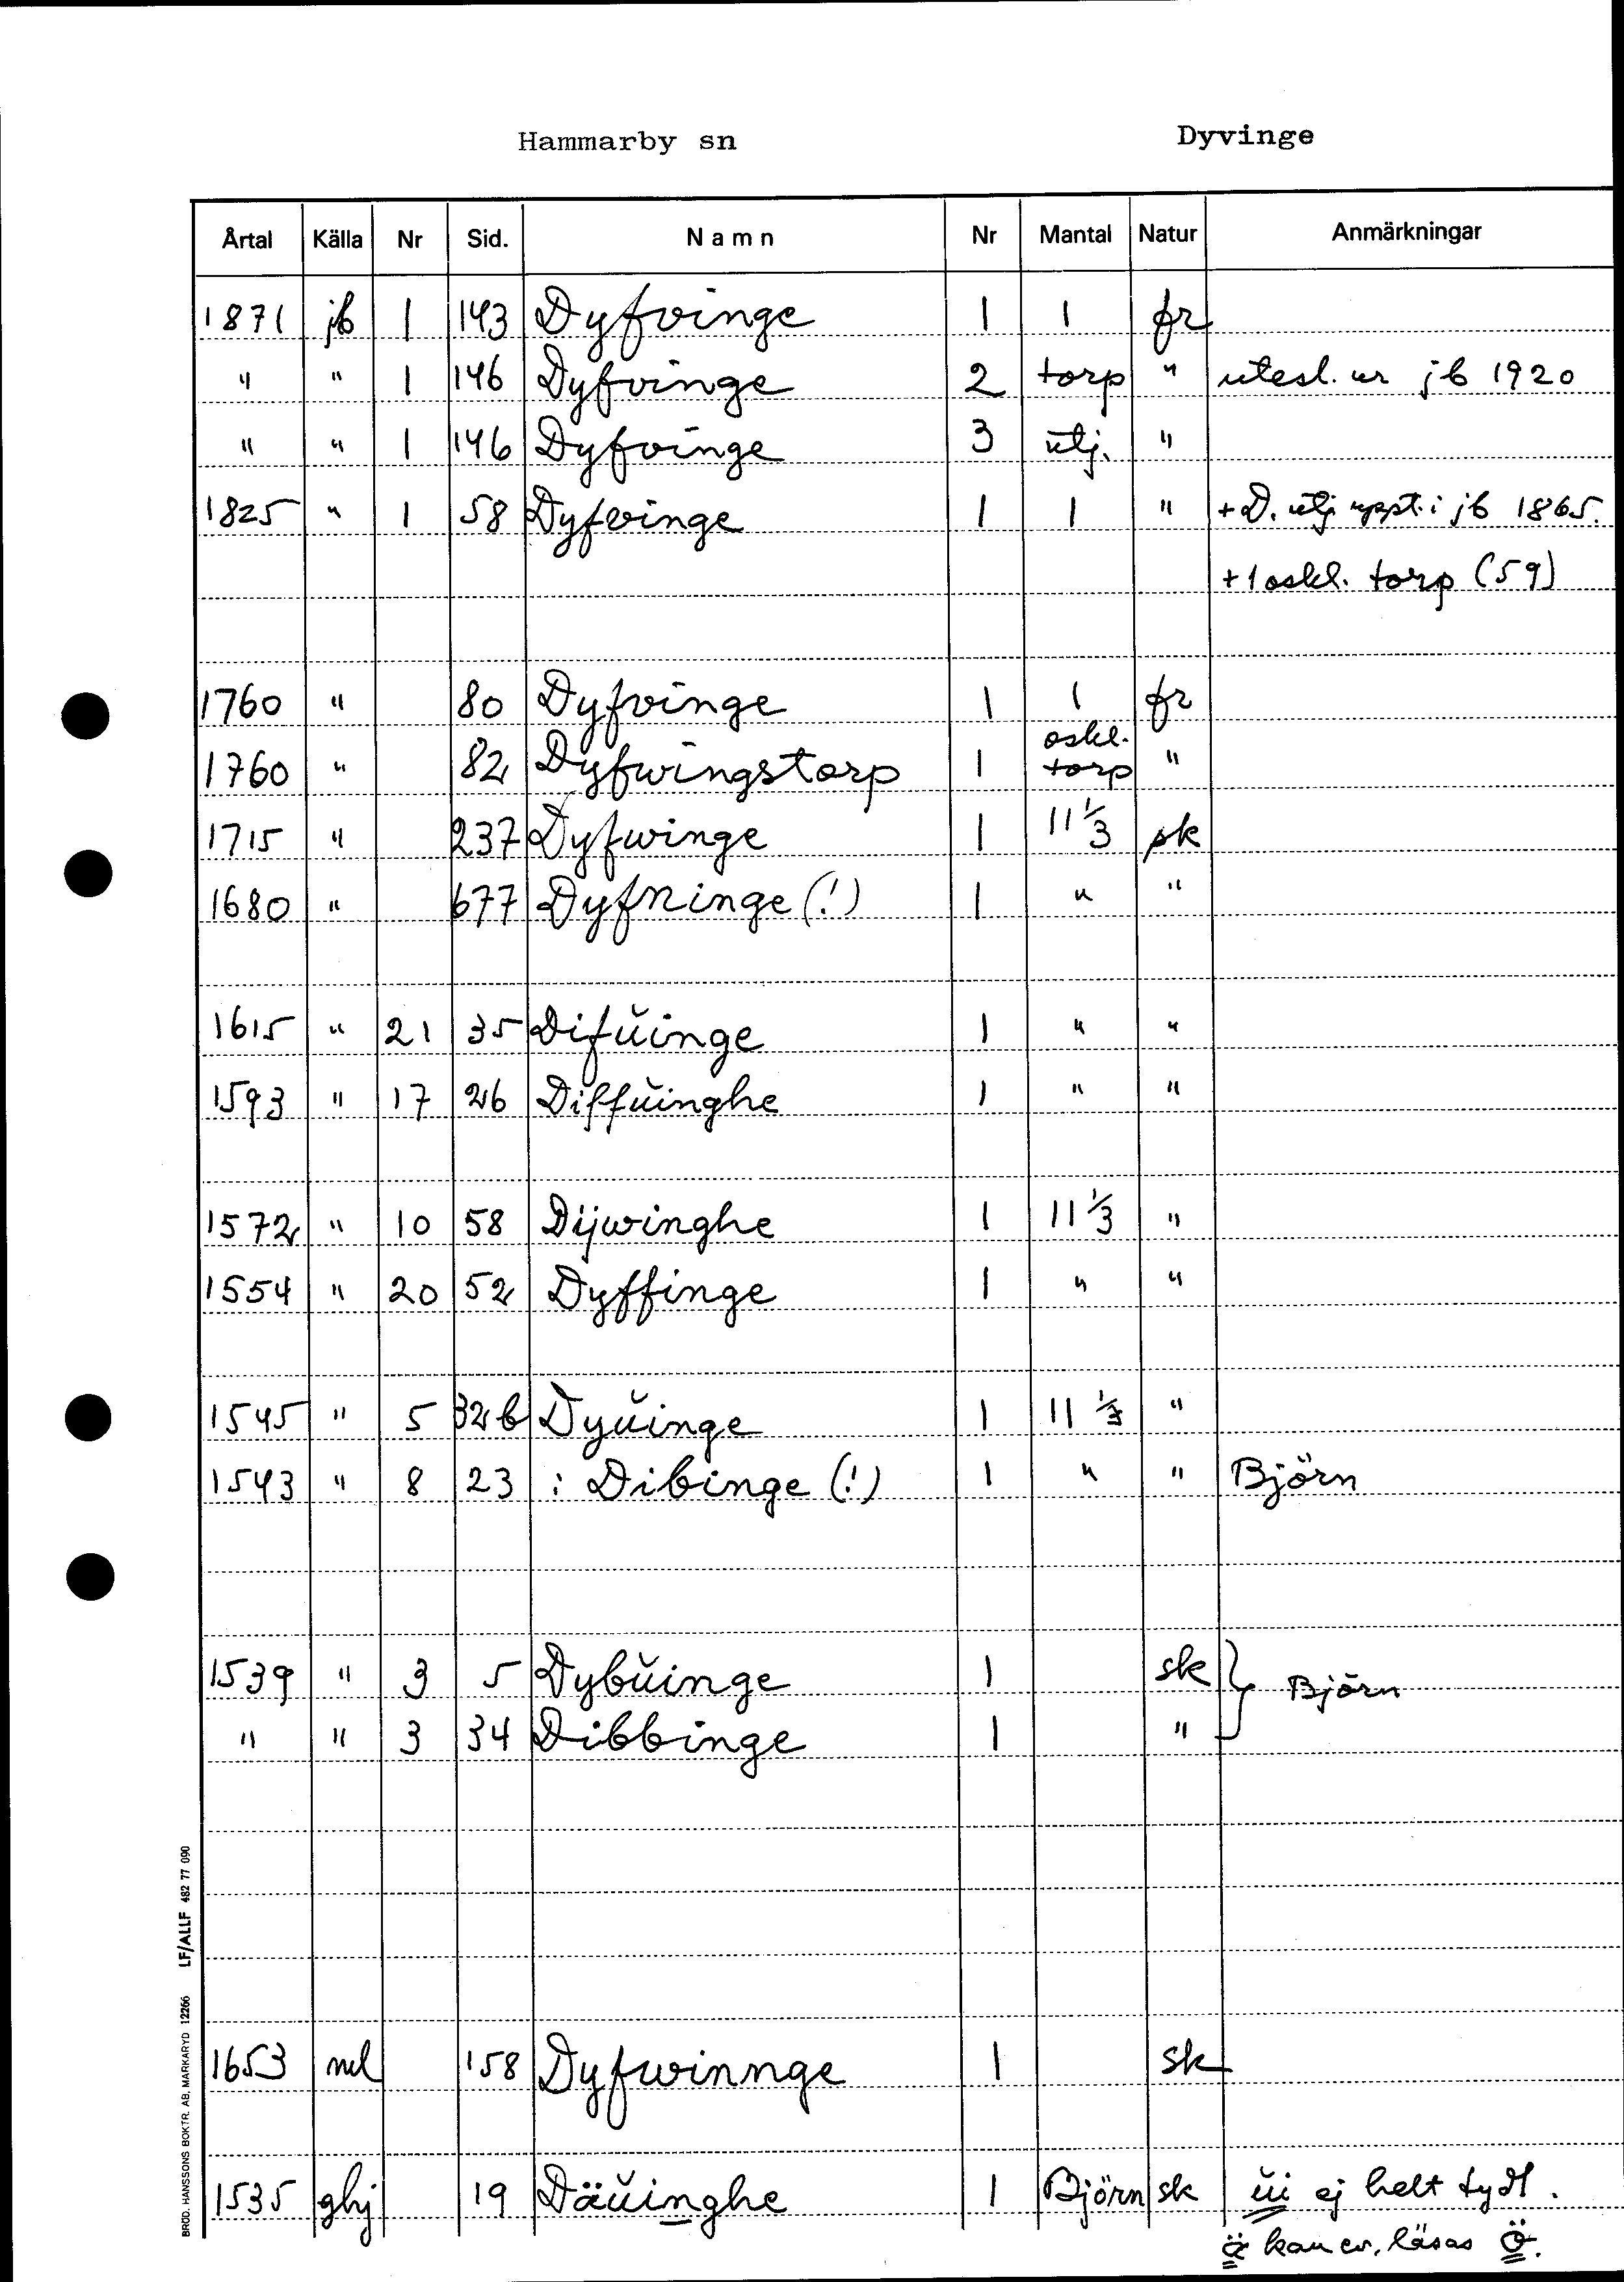 Hammarby sn Dyvinge
Årtal Källa Nr Sid. Namn Nr Mantal Natur Anmärkningar
1871 jb 1 143 Dyfvinge 1 1 fr
" " 1 146 Dyfvinge 2 torp " utesl. ur jb 1920
" " 1 146 Dyfvinge 3 utj. "
1825 " 1 58 Dyfvinge 1 1 " + D. utj uppt. i jb 1865.
+ 1 oskl. torp (59)
1760 " 80 Dyfvinge 1 1 fr
1760 " 82 Dyfwingstorp 1 oskl. torp "
1715 " 237 Dyfwinge 1 11 1/3 sk
1680 " 677 Dyfninge (!) 1 " "
1615 " 21 35 Difŭinge 1 " "
1593 " 17 26 Diffŭinghe 1 " "
1572 " 10 58 Dijwinghe 1 11 1/3 "
1554 " 20 52 Dyffinge 1 " "
1545 " 5 32b Dyŭinge 1 11 1/3 "
1543 " 8 23 : Dibinge (!) 1 " " Björn
1539 " 3 5 Dybŭinge 1 sk } Björn
" " 3 34 Dibbinge 1 "
1653 ml 158 Dyfwinnge 1 sk
1535 ghj 19 Däŭinghe 1 Björn sk ŭi ej helt tydl.
ä kan ev. läsas ö.
BROD. HANSSONS BOKTR. AB, MARKARYD 12266 LF/ALLF 482 77 090